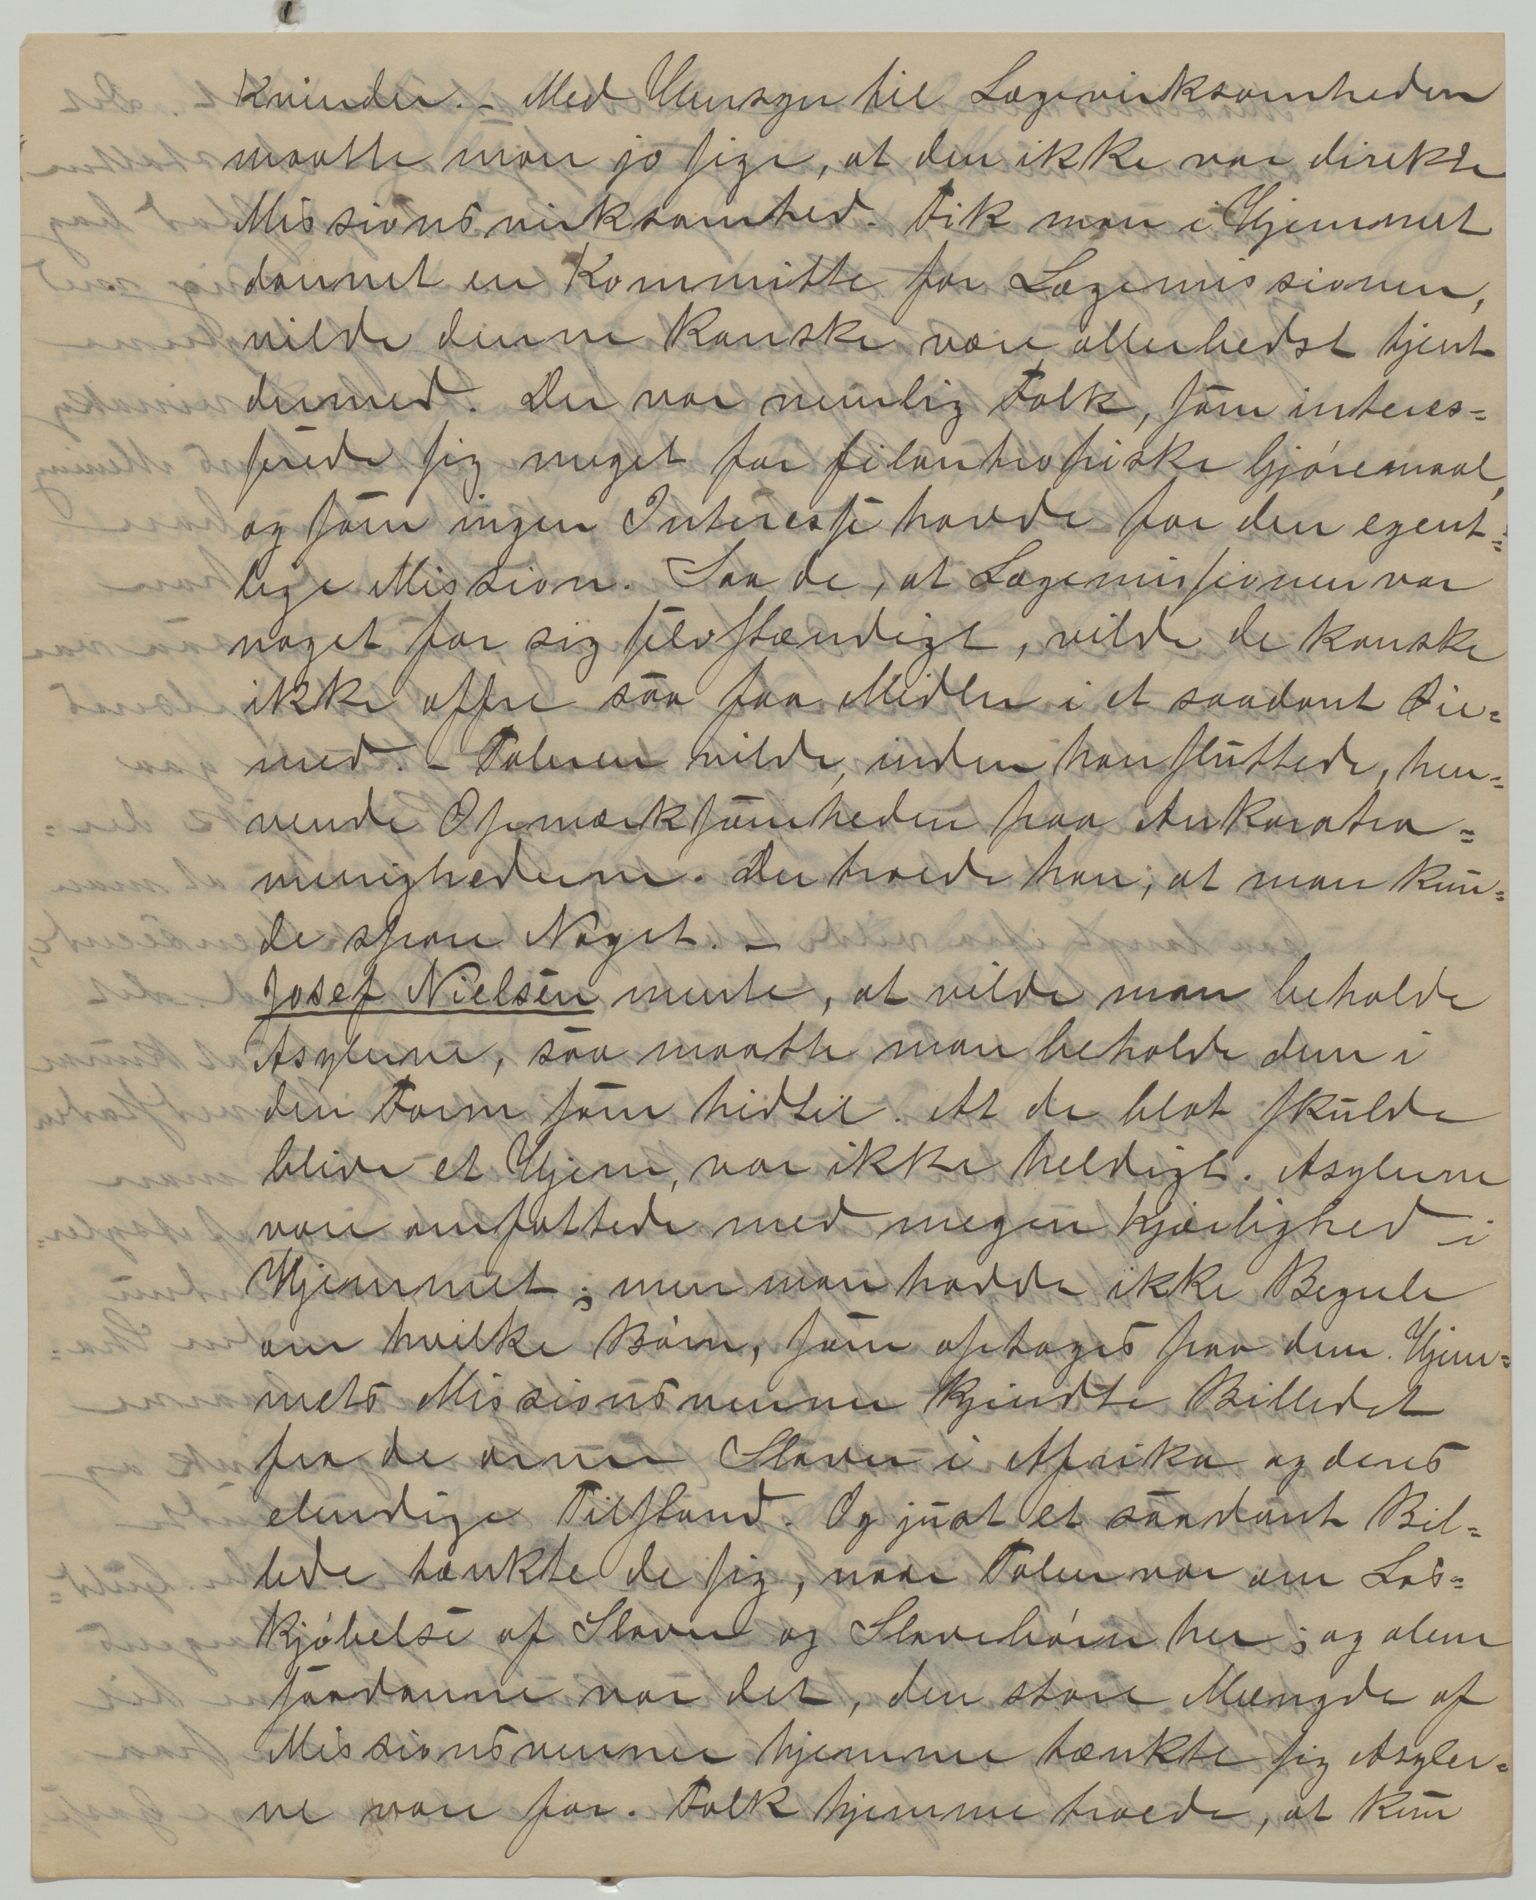 Kvinder. – Med Hensyn til Lægevirksomheden
maatte man jo sige, at den ikke var direkte
Missionsvirksomhed. Fik man i Hjemmet
dannet en Kommitte for Lægemissionen,
vilde denne kanske være allerbedst tjent
dermed. Der var nemlig Folk, som interes=
serede sig meget for filantropiske Gjøremaal,
og som ingen Interesse havde for den egent=
lige Mission. Saa de, at Lægemissionen var
noget for sig selvstændigt, vilde de kanske
ikke ofre saa faa Midler i et saadant Øie=
med. – Taleren vilde, inden han sluttede, hen=
vende Opmærksomheden paa Ankaratra=
menighederne. Der troede han, at man kun=
de spare Noget. –
Josef Nielsen mente, at vilde man beholde
Asylerne, saa maatte man beholde dem i
den Form som hidtil. At de blot skulde
blive et Hjem, var ikke heldigt. Asylerne
vare omfattede med megen Kjærlighed i
Hjemmet; men man havde ikke Begreb
om hvilke Børn, som optages paa dem. Hjem=
mets Missionsvenner kjendte Billedet
fra de arme Slaver i Afrika og deres
elendige Tilstand. Og just et saadant Bil=
lede tænkte de sig, naar Talen var om Løs=
kjøbelse af Slaver og Slavebørn her; og alene
saadanne var det, den store Mængde af
Missionsvenner hjemme tænkte sig Asyler=
ne vare for. Folk hjemme troede, at kun